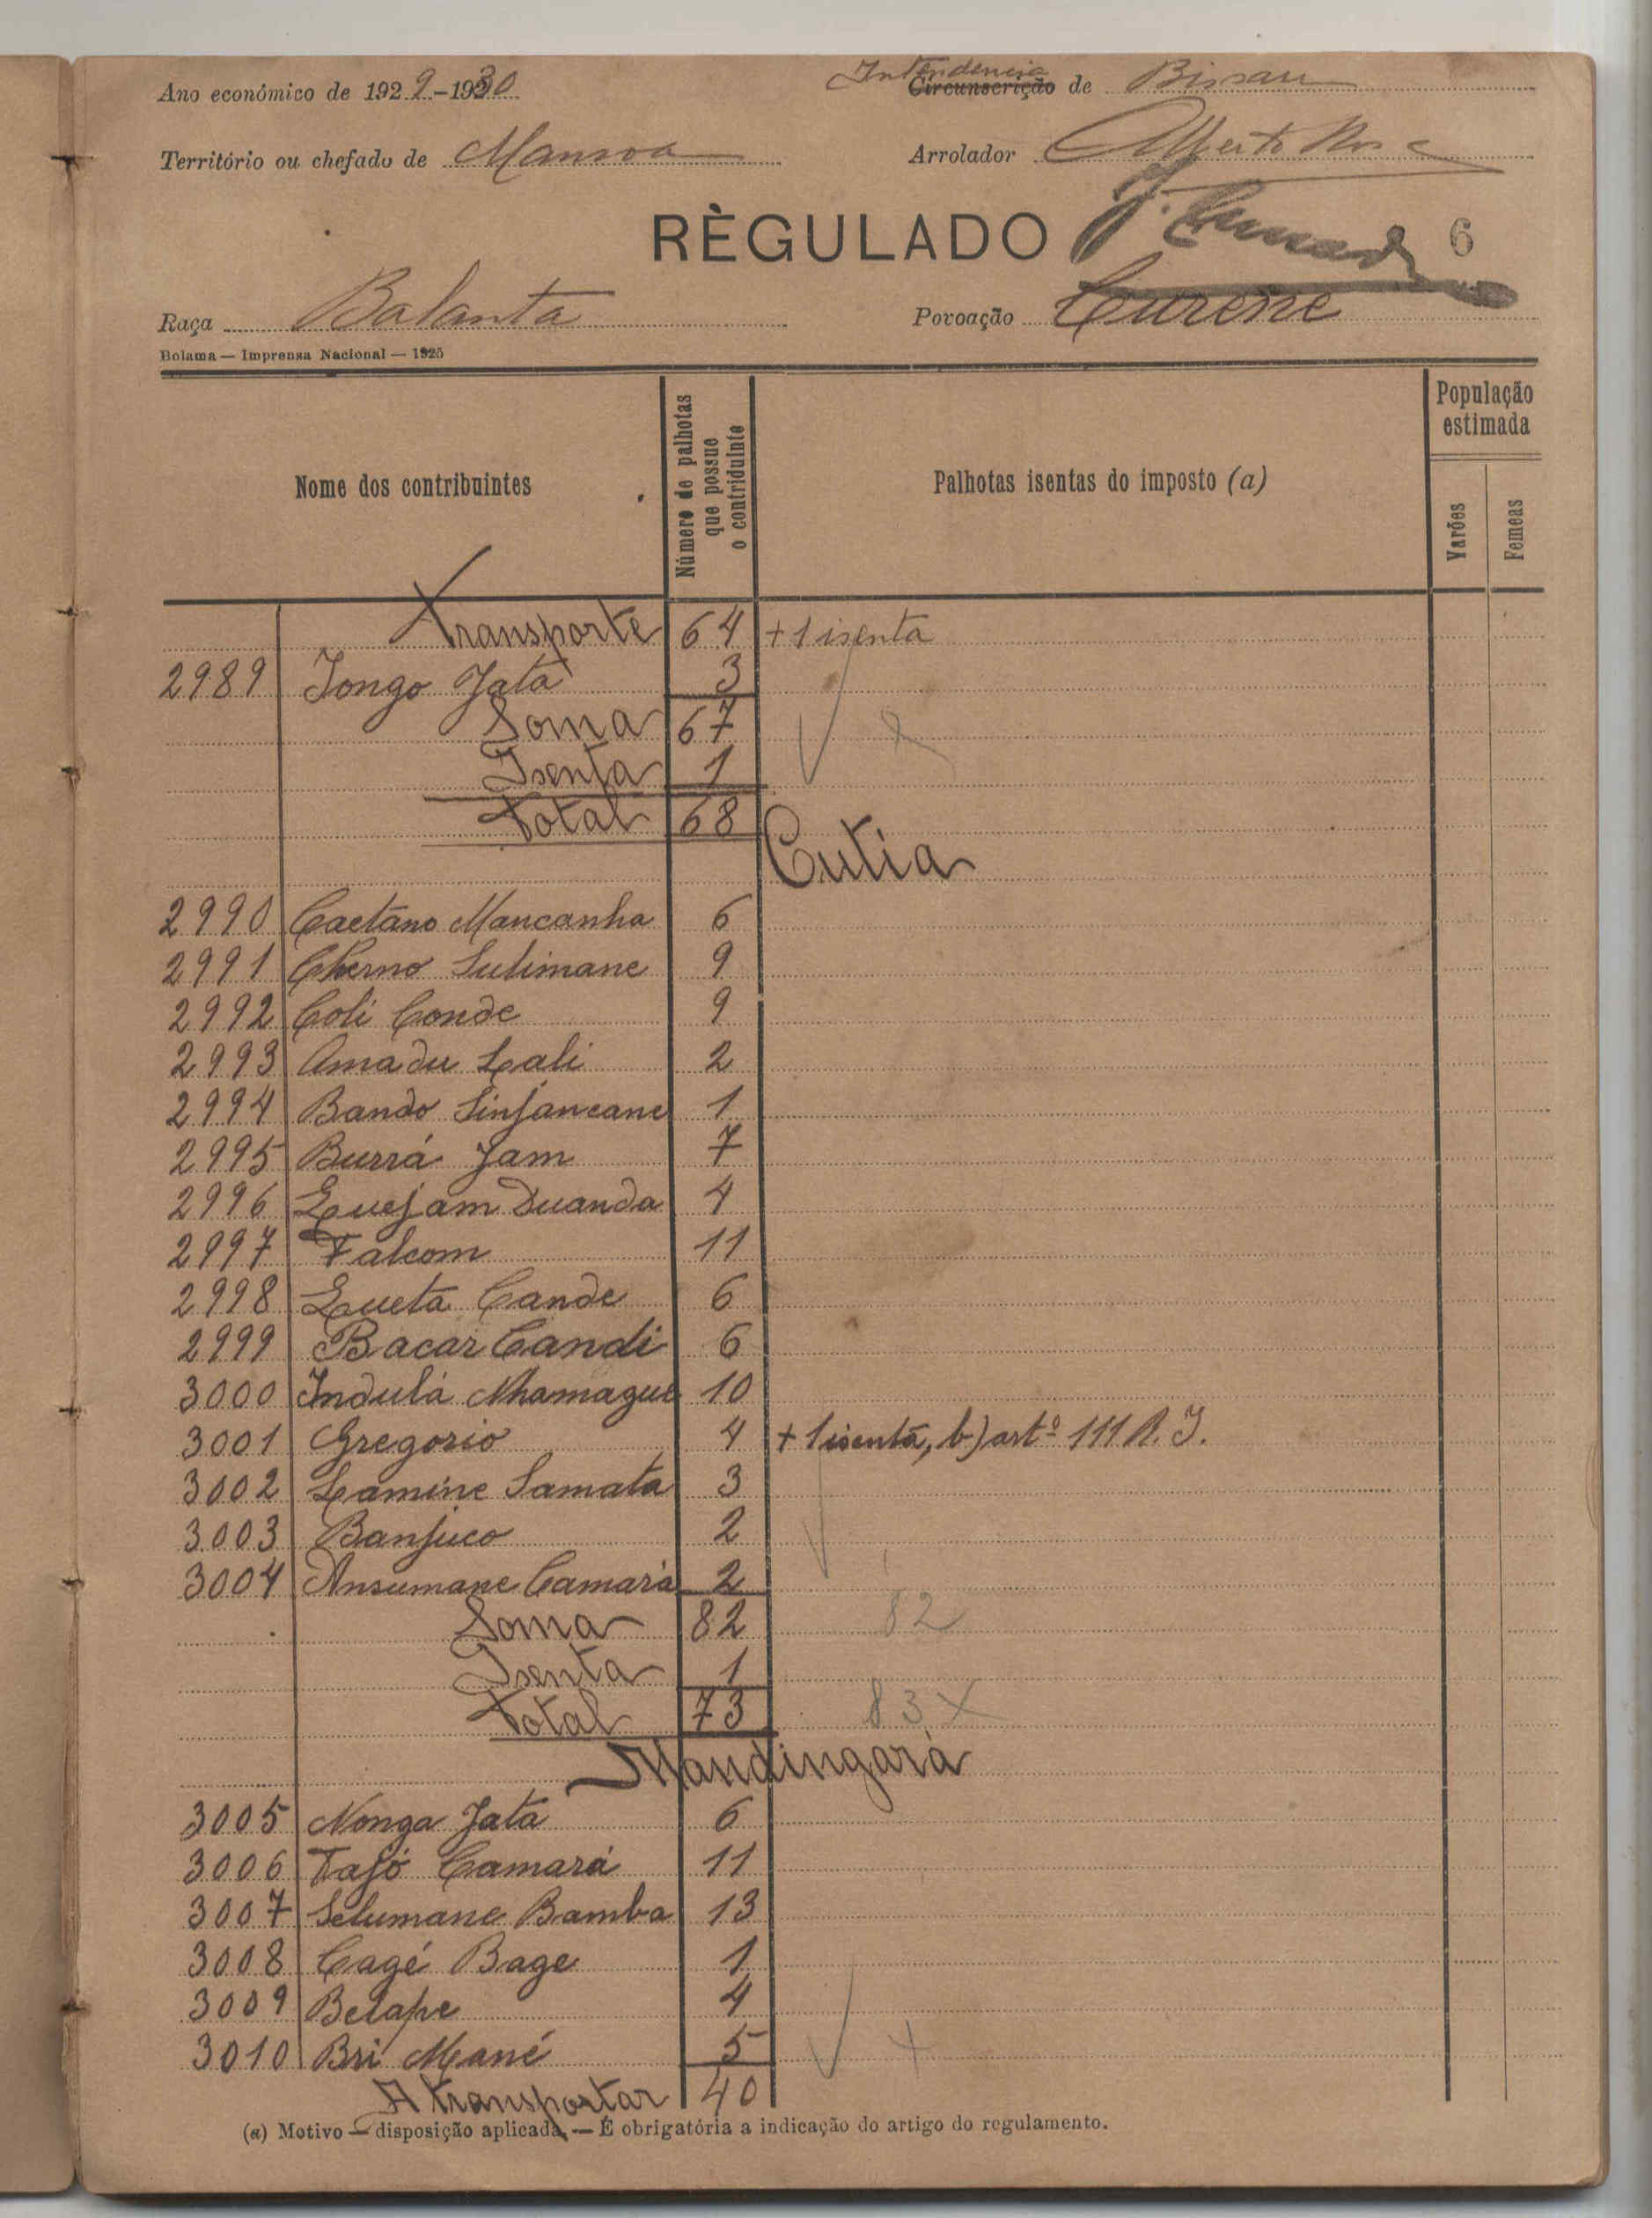 Ano económico de 1929-1930
Intendencia
Circunscrição de Bissau
Território ou chefado de Mansoa
Arrolador Alberto
RÈGULADO
6
Raça Balanta
Povoação Curene
Bolama — Imprensa Nacional — 1925
Nome dos contribuintes
Número de palhotas que possue o contriduinte
Palhotas isentas do imposto (a)
População estimada
Varões
Femeas
Transporte 64 +1 isenta
2989 Jongo Jatá 3
Soma 67
Isenta 1
Total 68
Cutia
2990 Caetano Mancanha 6
2991 Cherno Sulimane 9
2992 Coli Conde 9
2993 Amadu Lali 2
2994 Bando Sinjancane 1
2995 Burrá Jam 7
2996 Quejam Duanda 4
2997 Falcom 11
2998 Queta Cande 6
2999 Bacar Candi 6
3000 Indulá Nhamague 10
3001 Gregorio 4 +1 isenta, b) artº 111 R. I.
3002 Lamine Samata 3
3003 Banjuco 2
3004 Ansumane Camará 2
Soma 82 82
Isenta 1
Total 73 83 X
Mandingará
3005 Nonga Jatá 6
3006 Tajó Camará 11
3007 Selumane Bamba 13
3008 Cagé Bage 1
3009 Betape 4
3010 Bri Mané 5
A transportar 40
(a) Motivo — disposição aplicada, — É obrigatória a indicação do artigo do regulamento.